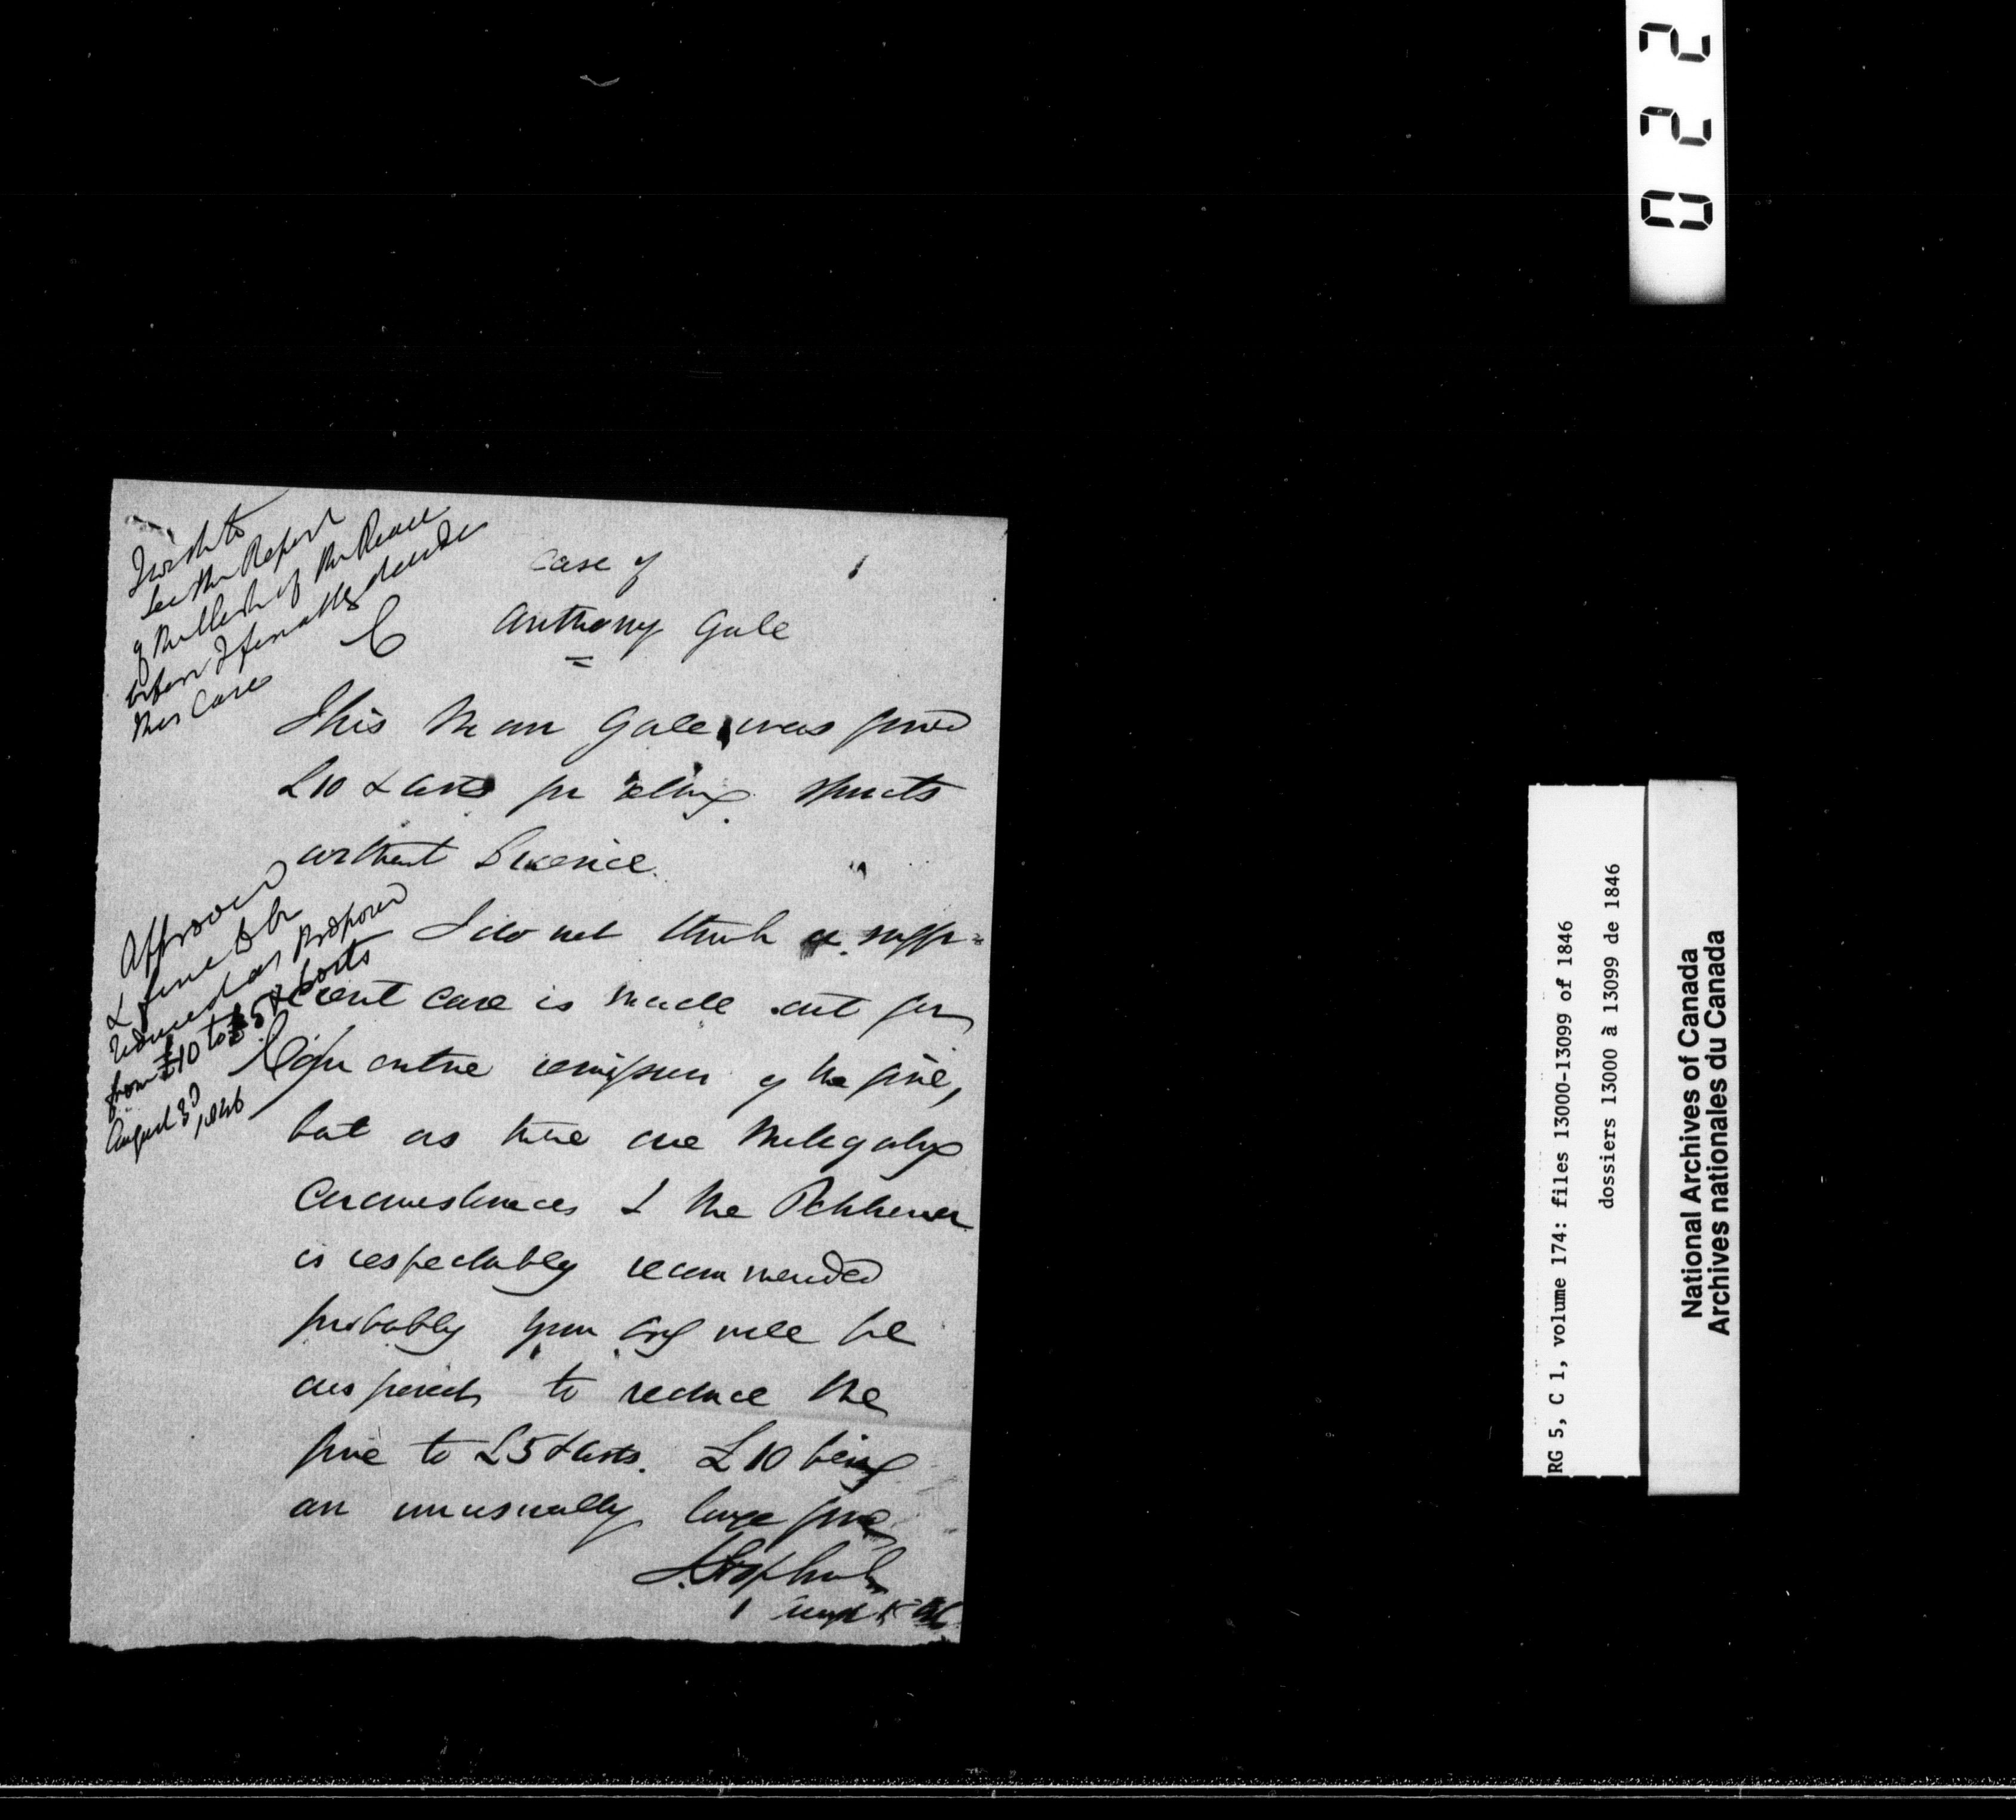 I wish to
see the Report
of the Clerk of the Peace
before I finally decide
this Case
C
Case of
Anthony Gale
This man Gale was fined
£10 & costs for selling spirits
without Licence.
I do not think a suffi-
cient case is made out for
an entire remission of the fine,
but as there are mitigating
circumstances & the Petitioner
is respectably recommended
probably your Excy will be
disposed to reduce the
fine to £5 & costs. £10 being
an unusually large fine
Approved
& fine to be
reduced as proposed
from £10 to £5 & Costs
C
August 3d, 1846
022
RG 5, C 1, volume 174: files 13000-13099 of 1846
dossiers 13000 à 13099 de 1846
National Archives of Canada
Archives nationales du Canada